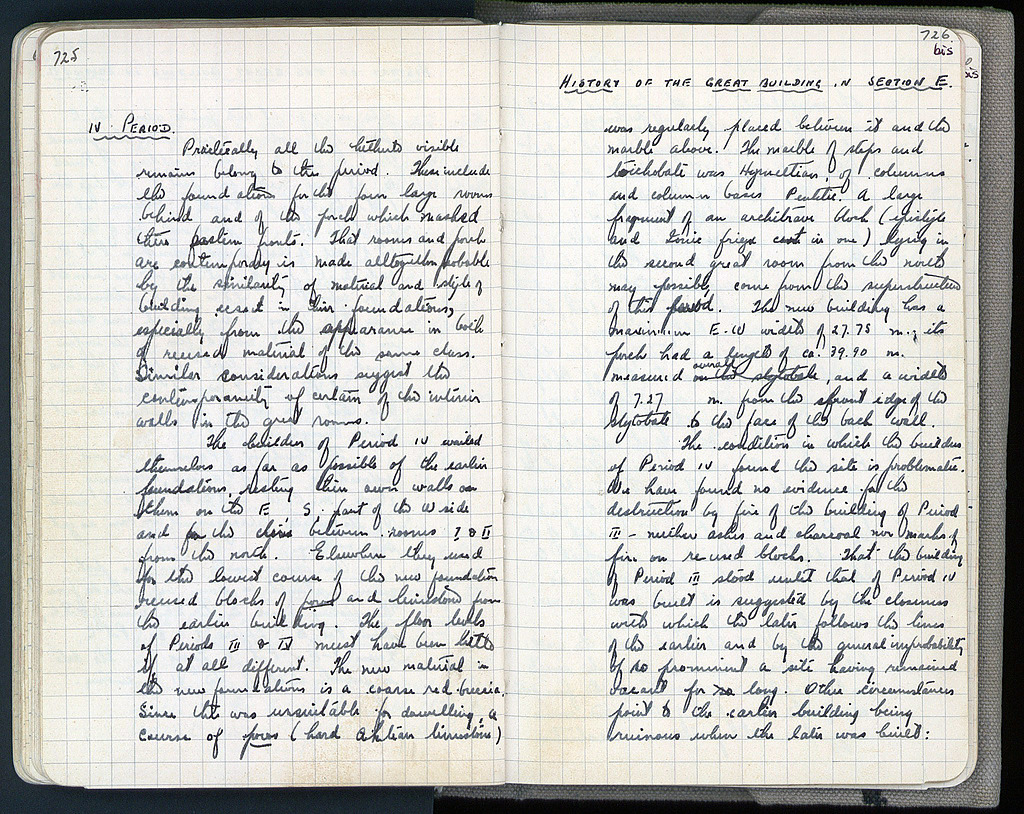 725
IV PERIOD.
Practically all the hitherto visible
remains belong to this period. These include
the foundations for the four large rooms
behind and of the porch which masked
their eastern fronts. That rooms and porch
are contemporary is made altogether probable
by the similarity of material and style of
building used in their foundations,
especially from the appearance in both
of reused material of the same class.
Similar considerations suggest the
contemporaneity of certain of the interior
walls in the great rooms.
The builders of Period IV availed
themselves as far as possible of the earlier
foundations, resting their own walls on
them on the E S. part of the W side
and for the division between rooms I & II
from the north. Elsewhere they used
for the lowest course of the new foundation
reused blocks of poros and limestone from
the earlier building. The floor levels
of Periods III & IV must have been little
if at all different. The new material in
the new foundations is a coarse red breccia.
Since this was unsuitable for dowelling, a
course of poros (hard Aktean limestone)
726
bis
bis
HISTORY OF THE GREAT BUILDING IN SECTION E.
was regularly placed between it and the
marble above. The marble of steps and
toichobate was Hymettian, of columns
and column bases Pentelic. A large
fragment of an architrave block (epistyle
and Ionic frieze cut in one) lying in
the second great room from the north
may possibly come from the superstructure
of this period. The new building has a
maximum E-W width of 27.75 m., its
porch had a length of ca. 39.90 m.
measured overall on the stylobate, and a width
of 7.27 m. from the front edge of the
stylobate to the face of the back wall.
The condition in which the builders
of Period IV found the site is problematic.
We have found no evidence for the
destruction by fire of the building of Period
III – neither ashes and charcoal nor marks of
fire on reused blocks. That the building
of Period III stood until that of Period IV
was built is suggested by the closeness
with which the later follows the lines
of the earlier and by the general improbability
of so prominent a site having remained
vacant for so long. Other circumstances
point to the earlier building being
ruinous when the later was built: